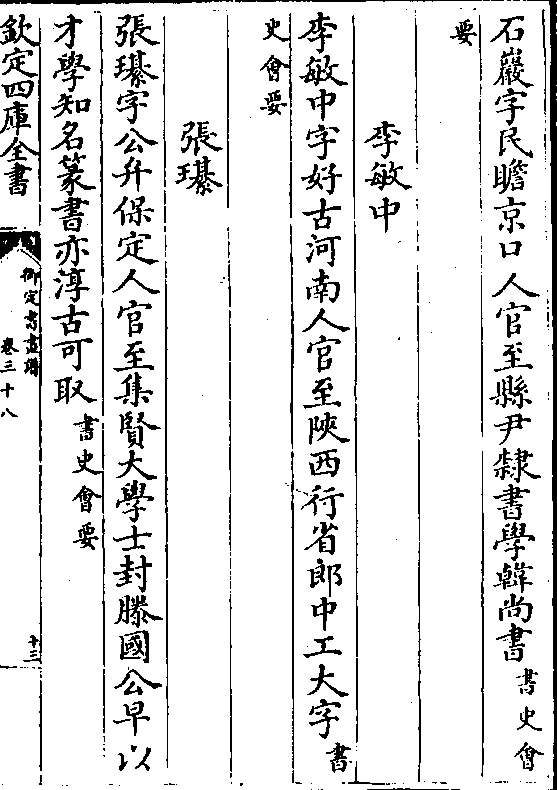 石巖字民瞻京口人官至縣尹隸書學韓尚書書史會
要
李敏中
李敏中字好古河南人官至陝西行省郎中工大字書
史會要
張瓂
張瓂字公弁保定人官至集賢大學士封滕國公早以
才學知名篆書亦淳古可取書史會要
欽定四庫全書
御定書畫譜
卷三十八
十三